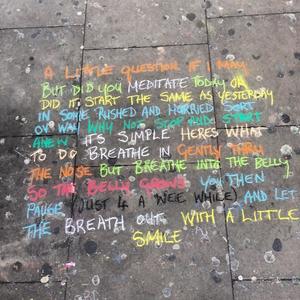 A LITTLE QUESTION IF I MAY
BUT DID YOU MEDITATE TODAY OR
DID IT START THE SAME AS YESTERDAY
IN SOME RUSHED AND HORRIED SORT
OV WAY WHY NOT STOP AND START
ANEW ITS SIMPLE HERES WHAT
TO DO BREATHE IN GENTLY THRU
THE NOSE BUT BREATHE INTO THE BELLY
SO THE BELLY GROWS YOU THEN
PAUSE (JUST 4 A WEE WHILE) AND LET
THE BREATH OUT WITH A LITTLE
SMILE